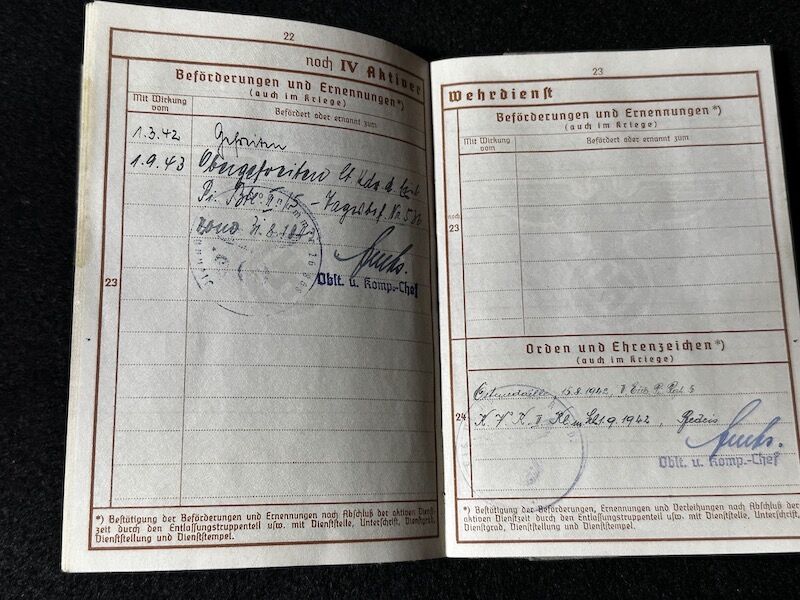 22
noch IV Aktiver
Beförderungen und Ernennungen*)
(auch im Kriege)
Mit Wirkung vom
Befördert oder ernannt zum
1.3.42 Gefreiten
1.9.43 Obergefreiten lt.
Pi. Btl. - Tagesbef. Nr.
vom 31.8.
23
Oblt. u. Komp.-Chef
*) Bestätigung der Beförderungen und Ernennungen nach Abschluß der aktiven Dienst-
zeit durch den Entlassungstruppenteil usw. mit Dienststelle, Unterschrift, Dienstgrad,
Dienststellung und Dienststempel.
23
Wehrdienst
Beförderungen und Ernennungen*)
(auch im Kriege)
Mit Wirkung vom
Befördert oder ernannt zum
noch
23
Orden und Ehrenzeichen*)
(auch im Kriege)
Ostmedaille, 15.8.1942,
24
K.V.K. II Kl. m. Schw. 1.9.1942,
Oblt. u. Komp.-Chef
*) Bestätigung der Beförderungen, Ernennungen und Verleihungen nach Abschluß der
aktiven Dienstzeit durch den Entlassungstruppenteil usw. mit Dienststelle, Unterschrift,
Dienstgrad, Dienststellung und Dienststempel.